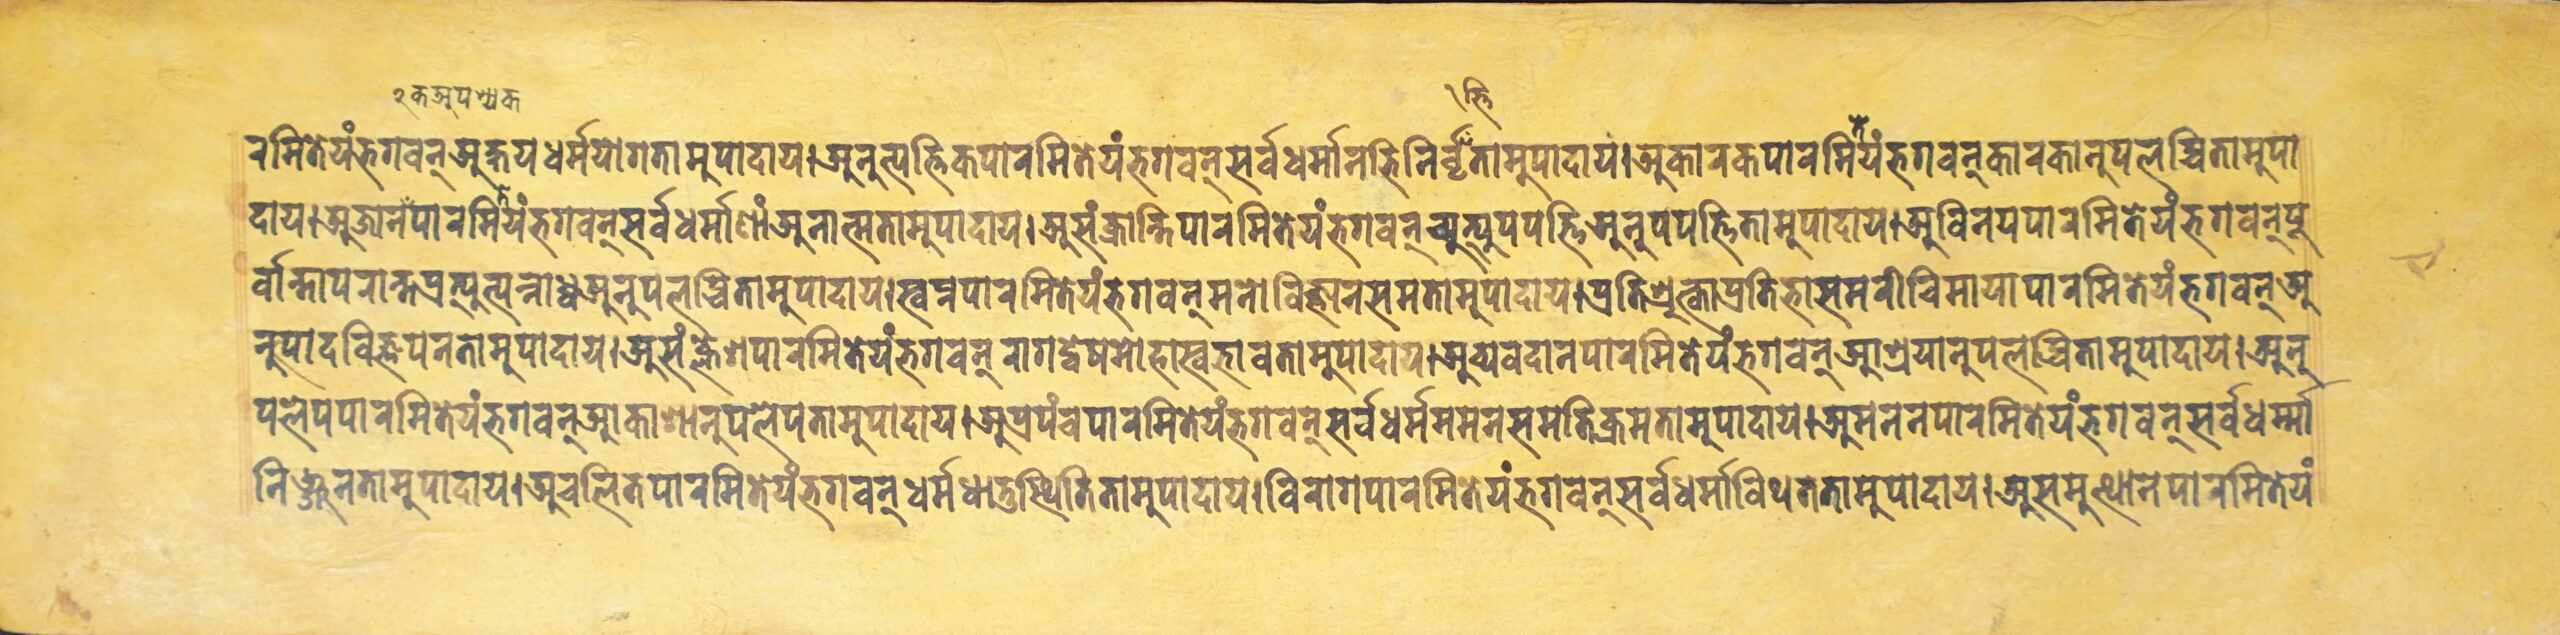 २क अपश्यक
र्त्ति
रमितेयं भगवन् अक्षयधर्मयोगतामुपादाय। अनुत्पत्तिकपारमितेयं भगवन् सर्वधर्मानभिनिर्वृतामुपादाय। अकारकपारमितेयं भगवन् कारकानुपलब्धितामुपा
दाय। अजानपारमितेयं भगवन् सर्वधर्माणां अनात्मतामुपादाय। असंक्रान्तिपारमितेयं भगवन् च्युत्युपपत्ति अनुपपत्तितामुपादाय। अविनयपारमितेयं भगवन् पू
र्वान्तापरान्तप्रत्युत्पन्नाध्वअनुपलब्धितामुपादाय। स्वप्नपारमितेयं भगवन् मनोविज्ञानसमतामुपादाय। प्रतिश्रुत्काप्रतिभासमरीचिमायापारमितेयं भगवन् अ
नुपादविज्ञपनतामुपादाय। असंक्लेशपारमितेयं भगवन् रागद्वेषमोहास्वभावतामुपादाय। अव्यवदानपारमितेयं भगवन् आश्रयानुपलब्धितामुपादाय। अनु
पलेपपारमितेयं भगवन् आकाशानुपलेपतामुपादाय। अप्रपंचपारमितेयं भगवन् सर्वधर्ममननसमतिक्रमतामुपादाय। अमननपारमितेयं भगवन् सर्वधर्म्मा
निञ्जनतामुपादाय। अचलितपारमितेयं भगवन् धर्मधातुस्थितितामुपादाय। विरागपारमितेयं भगवन् सर्वधर्मावितथतामुपादाय। असमुत्थानपारमितेयं